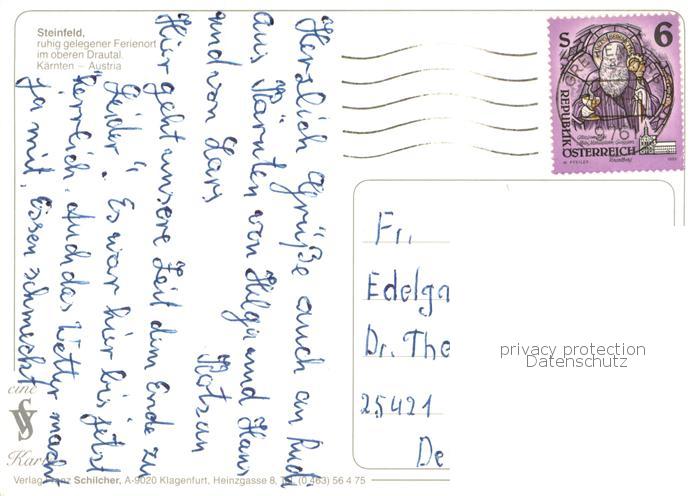 Steinfeld,
ruhig gelegener Ferienort
im oberen Drautal.
Kärnten – Austria
Herzlich Grüße auch an Rudi
aus Kärnten von Helga und Hans
und von Lars Kotzan
Hier geht unsere Zeit dem Ende zu
"Leider". Es war hier bis jetzt
herrlich. Auch das Wetter macht
ja mit, Essen schmeckt
S 6
REPUBLIK
ÖSTERREICH
Fr.
Edelga
Dr. The
25421
De
privacy protection
Datenschutz
eine
Karte
Verlag Franz Schilcher, A-9020 Klagenfurt, Heinzgasse 8, Tel. (0 463) 56 4 75